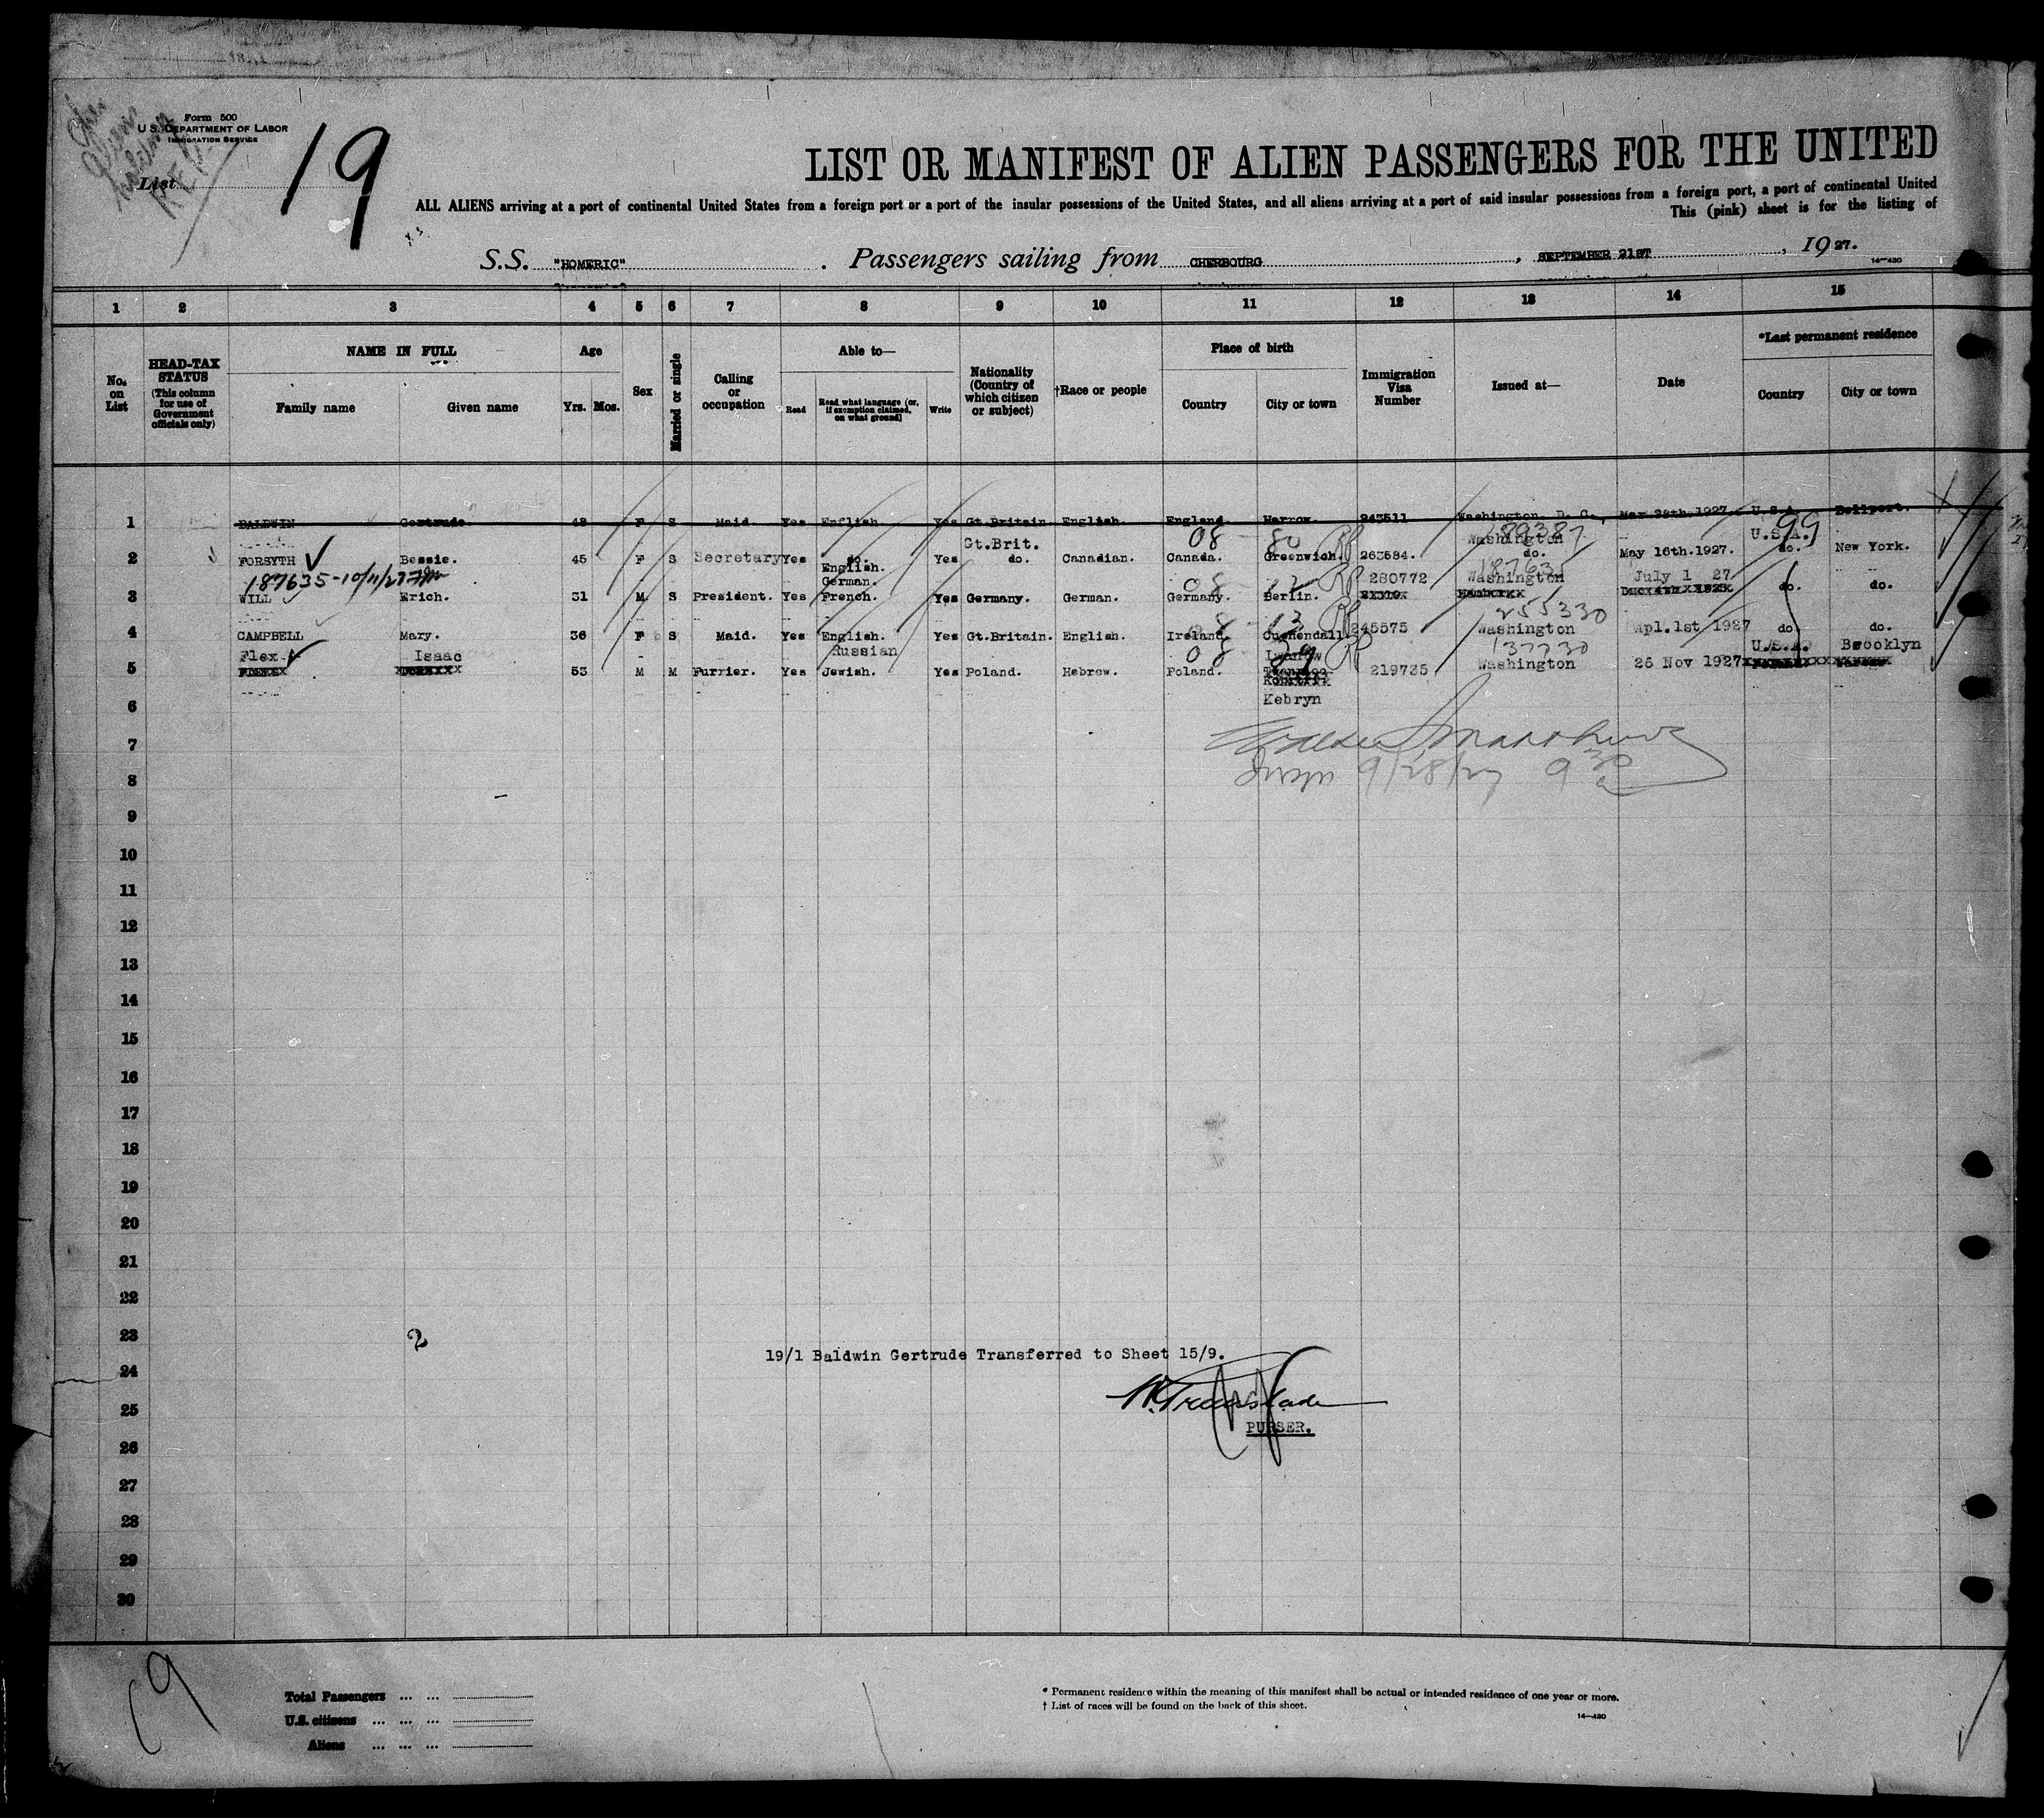 Form 500
U. S. DEPARTMENT OF LABOR
IMMIGRATION SERVICE
List 19
LIST OR MANIFEST OF ALIEN PASSENGERS FOR THE UNITED
ALL ALIENS arriving at a port of continental United States from a foreign port or a port of the insular possessions of the United States, and all aliens arriving at a port of said insular possessions from a foreign port, a port of continental United
This (pink) sheet is for the listing of
S.S. "HOMERIC" . Passengers sailing from CHERBOURG , SEPTEMBER 21ST , 1927.
14—430
1 2 3 4 5 6 7 8 9 10 11 12 13 14 15
No. on List
HEAD-TAX STATUS (This column for use of Government officials only)
NAME IN FULL
Family name Given name
Age
Yrs. Mos.
Sex
Married or single
Calling or occupation
Able to—
Read
Read what language (or, if exemption claimed, on what ground)
Write
Nationality (Country of which citizen or subject)
†Race or people
Place of birth
Country City or town
Immigration Visa Number
Issued at—
Date
*Last permanent residence
Country City or town
1 BALDWIN Gertrude. 48 F S Maid. Yes English. Yes Gt.Britain. English. England. Harrow. 243511 Washington. D. C., Mar 28th.1927. U.S.A. Bellport.
Gt.Brit. 08 80 RP Washington 29387 U.S.A. 99
2 FORSYTH Bessie. 45 F S Secretary Yes do. Yes do. Canadian. Canada. Greenwich. 263584. do. May 16th.1927. do. New York.
187635-10/11/27
English.
German. 08 12 RP 280772 Washington 187635 July 1 27
3 WILL Erich. 31 M S President. Yes French. Yes Germany. German. Germany. Berlin. do. do.
08 13 RP 255330
4 CAMPBELL Mary. 36 F S Maid. Yes English. Yes Gt.Britain. English. Ireland. Cushendall. 245575 Washington Apl.1st 1927 do. do.
Flex Isaac Russian 08 29 RP 137730 U.S.A. Brooklyn
5 53 M M Furrier. Yes Jewish. Yes Poland. Hebrew. Poland. 219735 Washington 26 Nov 1927
6 Kebryn
7
Insp 9/28/27 9 30 a
8
9
10
11
12
13
14
15
16
17
18
19
20
21
22
23
2
19/1 Baldwin Gertrude Transferred to Sheet 15/9.
24
25
PURSER.
26
27
28
29
30
19
Total Passengers ... ...
U.S. citizens ... ... ...
Aliens ... ... ...
* Permanent residence within the meaning of this manifest shall be actual or intended residence of one year or more.
† List of races will be found on the back of this sheet.
14—430